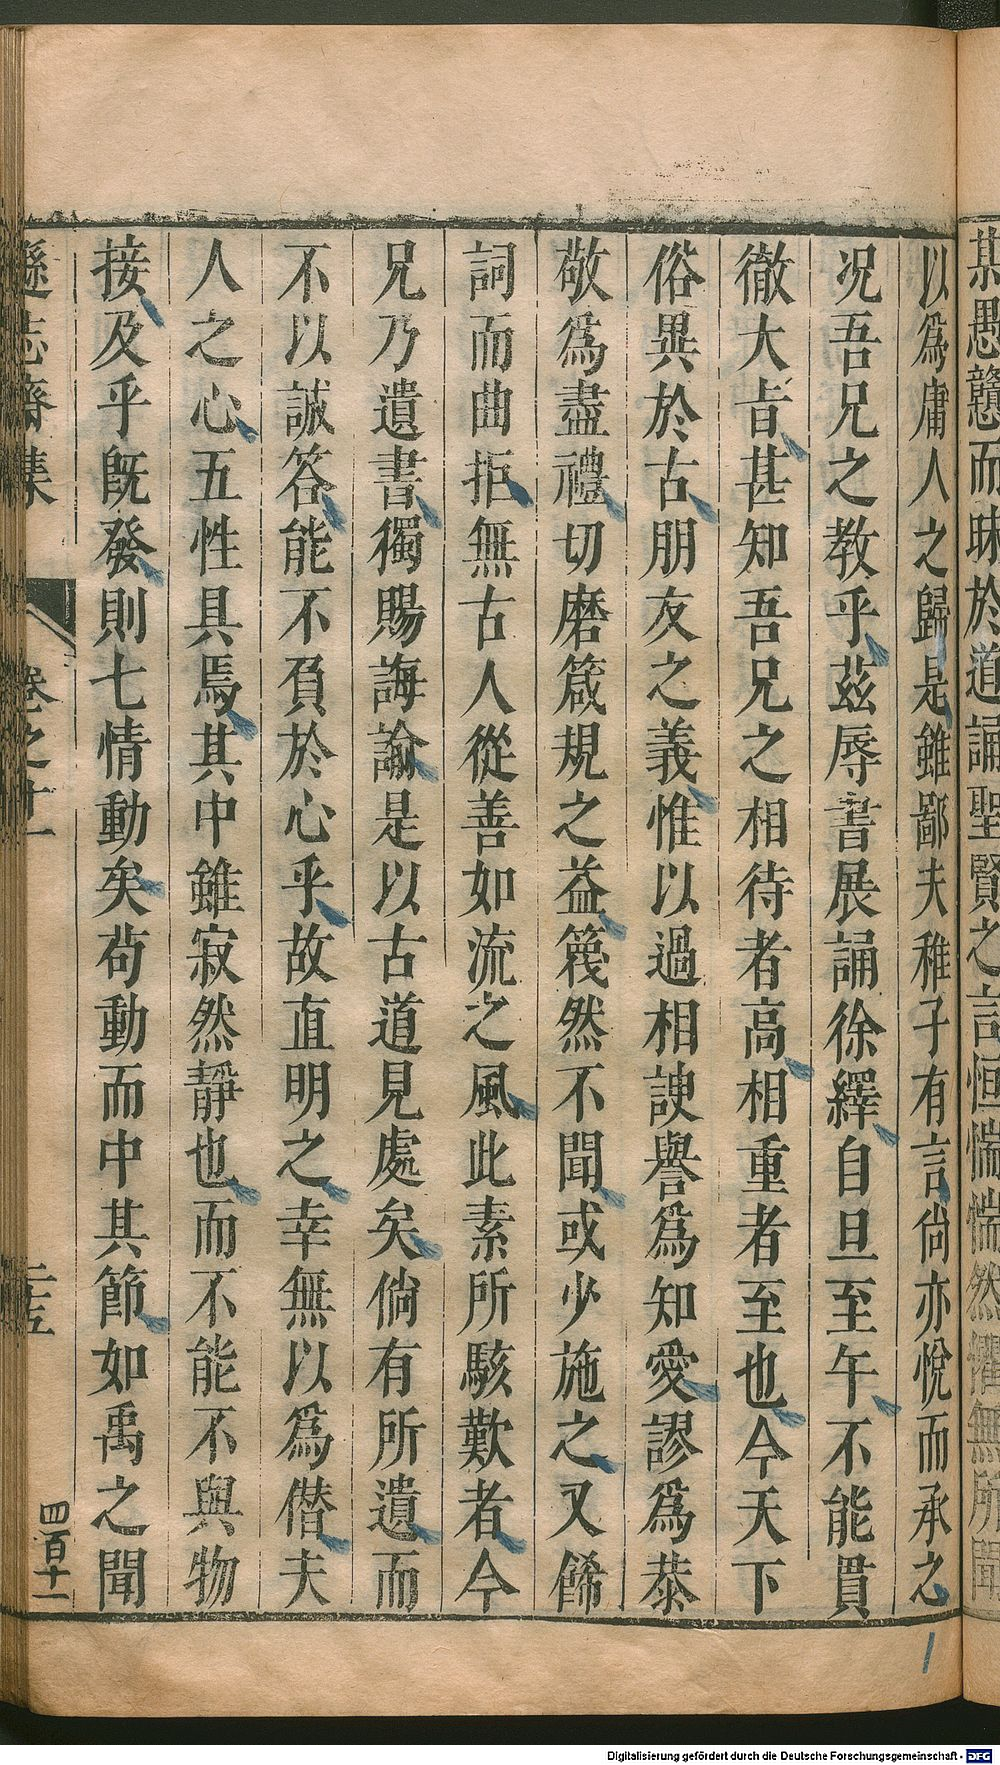 其愚戇而昧於道誦聖賢之言恒惴惴然懼無所聞
以爲庸人之歸是雖鄙夫稚子有言尙亦悅而承之
况吾兄之教乎茲辱書展誦徐繹自旦至午不能貫
徹大旨甚知吾兄之相待者高相重者至也今天下
俗異於古朋友之義惟以過相諛譽爲知愛謬爲恭
敬爲盡禮切磨箴規之益篾然不聞或少施之又餙
詞而曲拒無古人從善如流之風此素所駭歎者今
兄乃遺書獨賜誨諭是以古道見處矣倘有所遺而
不以誠答能不負於心乎故直明之幸無以爲僭夫
人之心五性具焉其中雖寂然靜也而不能不與物
接及乎旣發則七情動矣茍動而中其節如禹之聞
遜志齋集
卷之十一
二五
四百十一
Digitalisierung gefördert durch die Deutsche Forschungsgemeinschaft - DFG